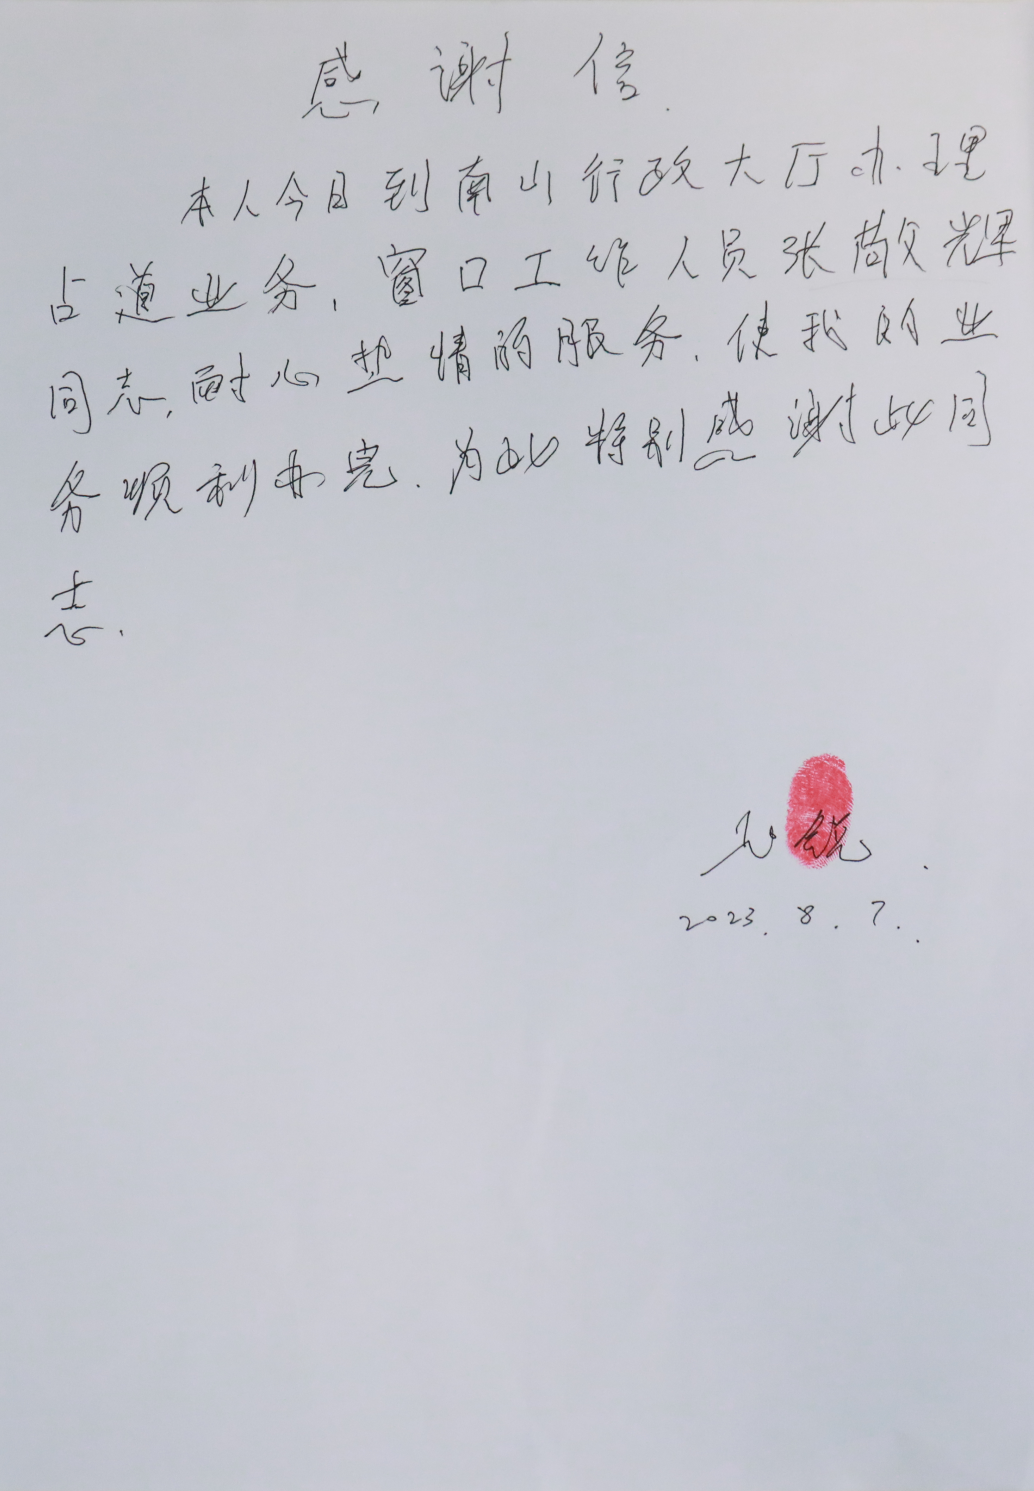 感谢信.
本人今日到南山行政大厅办理
占道业务,窗口工作人员张敬辉
同志,耐心热情的服务,使我的业
务顺利办完.为此特别感谢此同
志.
2023.8.7.